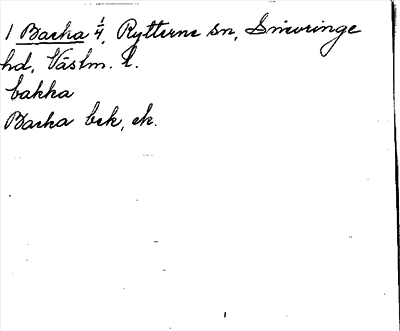 1 Backa 4, Rytterne sn, Snevringe
hd, Västm. l.
bakka
Backa bek, ek.